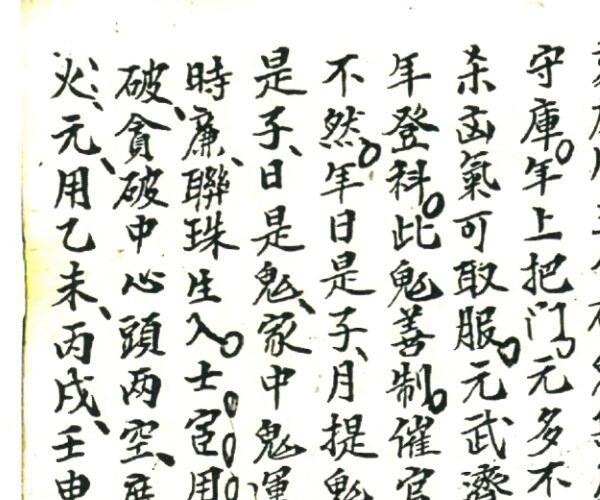 守庫。年上把门。元多不
杀凾氣可取服。元武濟
年登科。此鬼善制。催官
不然。年日是子、月提鬼
是子、日是鬼、家中鬼運
時廉、聯珠生入。士宦。用
破、貪破中心頭两空、
火、元、用乙未、丙戌、壬申